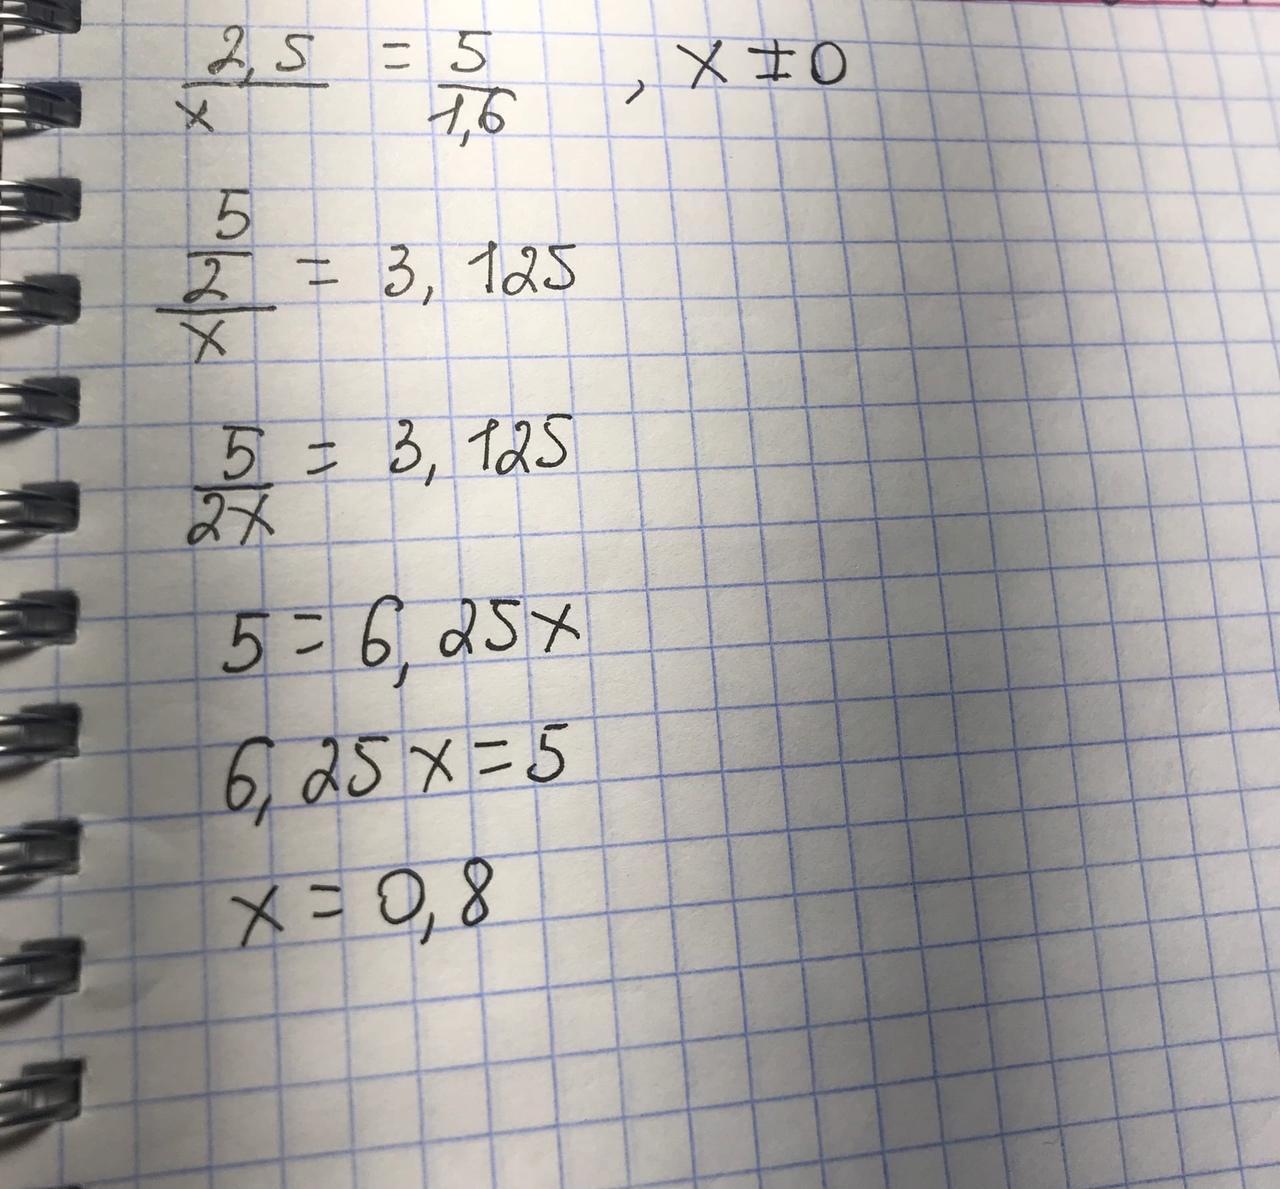 2,5/x = 5/1,6 , x ≠ 0
5/2/x = 3,125
5/2x = 3,125
5 = 6,25x
6,25x = 5
x = 0,8